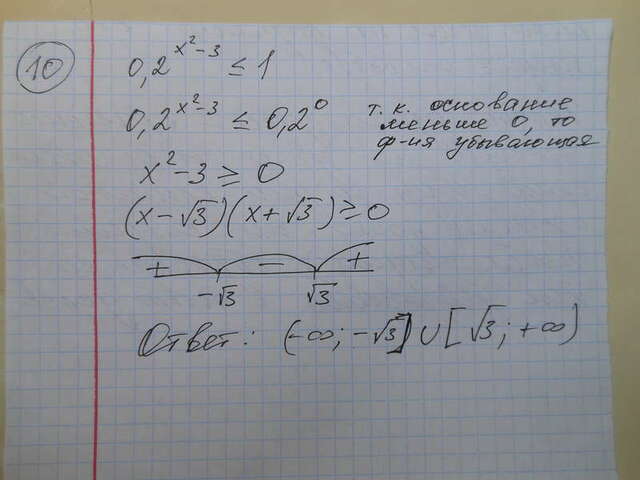 10
0,2^(x²-3) ≤ 1
0,2^(x²-3) ≤ 0,2^0
т. к. основание
меньше 0, то
ф-ия убывающая
x² - 3 ≥ 0
(x - √3)(x + √3) ≥ 0
+ − +
-√3 √3
Ответ: (-∞; -√3] ∪ [√3; +∞)